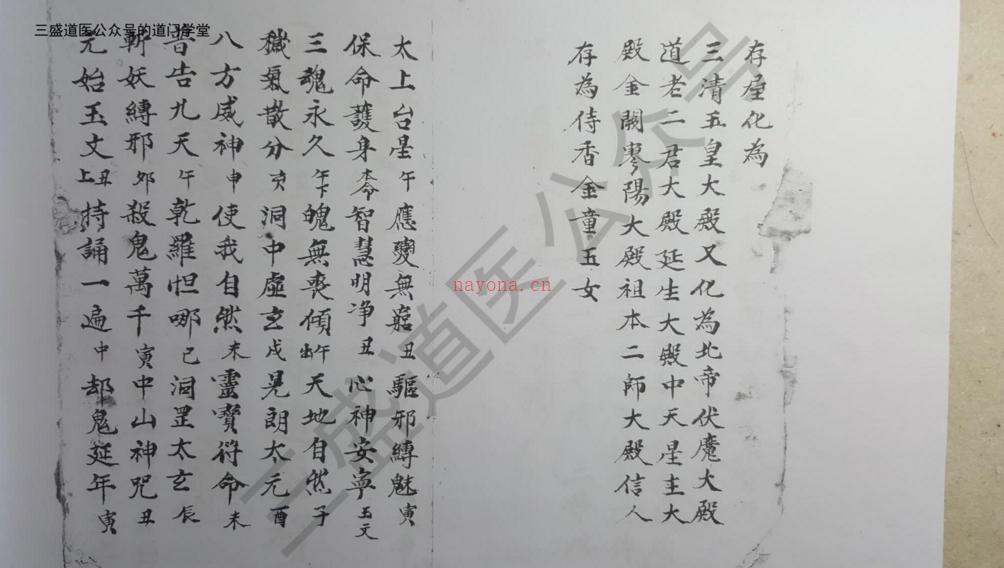 三盛道医公众号的道门学堂
存屋化為
三清五皇大殿又化為北帝伏魔大殿
道老二君大殿延生大殿中天星主大
殿金闕寥陽大殿祖本二師大殿信人
存為侍香金童玉女
太上台星午應變無窮丑驅邪縛魅寅
保命護身智慧明净丑心神安寧玉文
三魂永久魄無丧傾天地自然子
穢氣散分亥洞中虛玄戌晃朗太元酉
八方威神申使我自然未靈寶符命未
普告九天午乾羅怛哪巳洞罡太玄辰
斬妖縛邪卯殺鬼萬千寅中山神咒丑
元始玉文丑上持誦一遍中却鬼延年寅
三盛道医公众号
nayona.cn